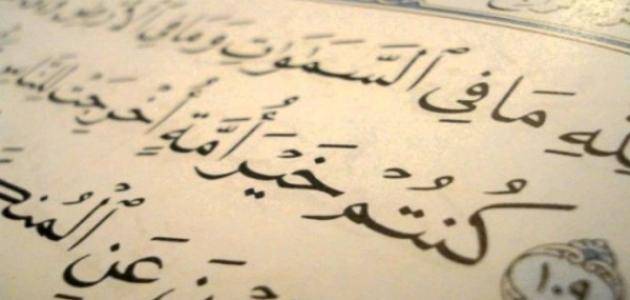 لِلَّهِ مَا فِي ٱلسَّمَٰوَٰتِ وَمَا فِي ٱلْأَرْضِ
١٠٩ كُنتُمْ خَيْرَ أُمَّةٍ أُخْرِجَتْ لِلنَّاسِ
عَنِ ٱلْمُنكَ